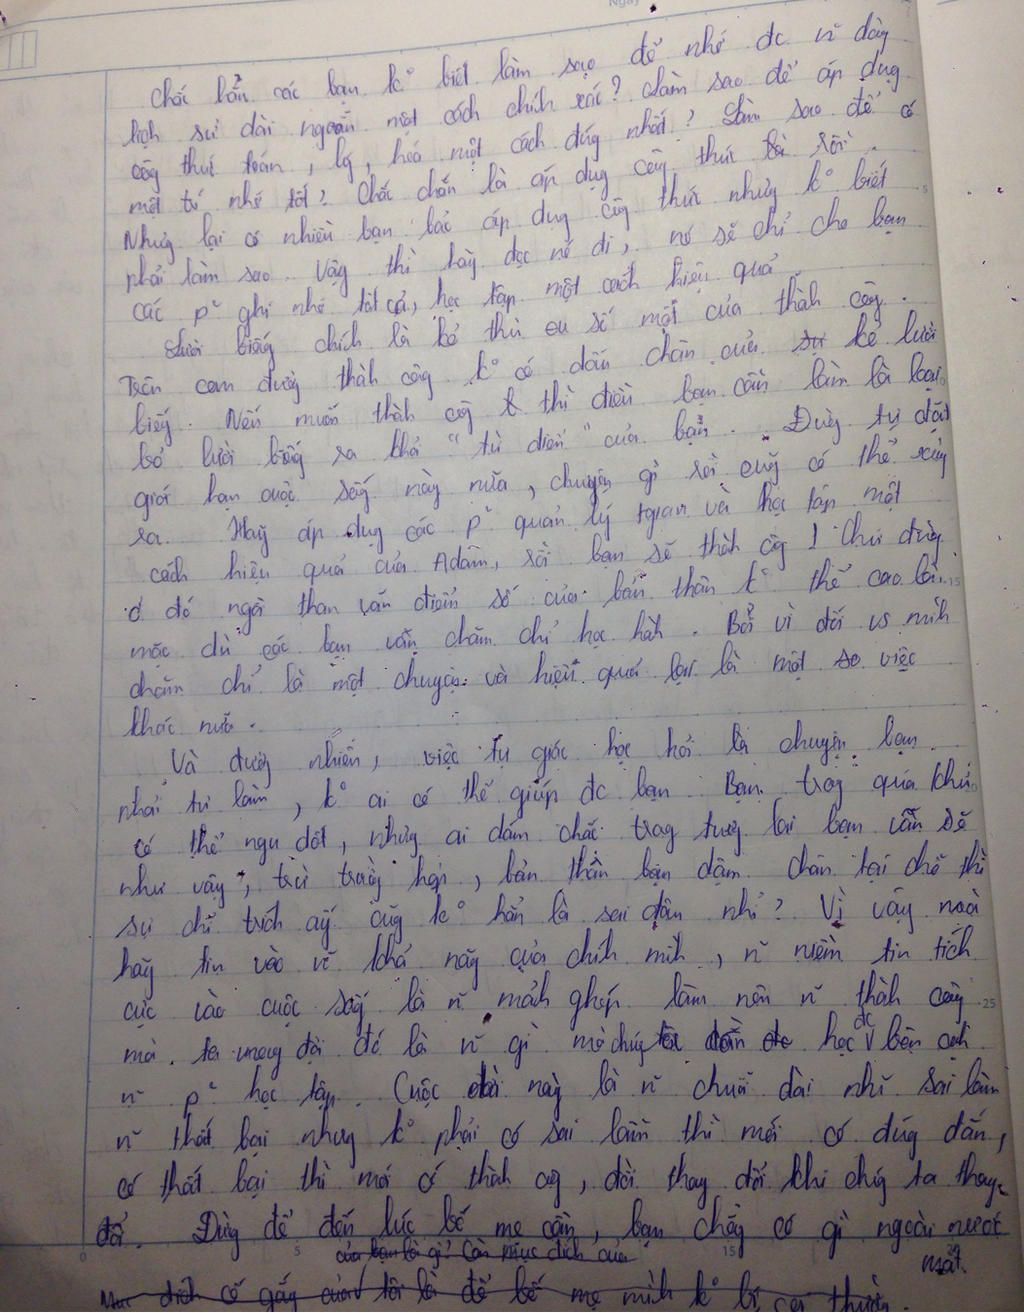 Chắc hẳn các bạn k° biết làm sao để nhớ đc n~ dòng
lịch sử dài ngoẵn một cách chính xác? Làm sao để áp dụg
côg thức toán, lý, hoá một cách đúg nhất? Làm sao để có
một trí nhớ tốt? Chắc chắn là áp dụg côg thức rồi.
Nhưg lại có nhiều bạn bảo áp dụg côg thức nhưg k° biết
phải làm sao. Vậy thì hãy đọc nó đi, nó sẽ chỉ cho bạn
các p² ghi nhớ tất cả, học tập một cách hiệu quả
Lười biếg chíh là kẻ thù số một của thàh côg.
Trên con đườg thàh côg k° có dấu chân của sự kẻ lười
biếg. Nếu muốn thàh côg thì điều bạn cần làm là loại
bỏ lười biếg ra khỏi "từ điển" của bạn. Đừg tự đặt
giới hạn cuộc sốg này nữa, chuyện gì rồi cũg có thể xảy
ra. Hãy áp dụg các p² quản lý tgian và học tập một
cách hiệu quả của Adam, rồi bạn sẽ thàh côg! Chứ đừg
ở đó ngồi than vãn điểm số của bản thân k° thể cao lên
mặc dù các bạn vẫn chăm chỉ học hàh. Bởi vì đối vs mìh
chăm chỉ là một chuyện và hiệu quả lại là một việc
khác nữa.
Và đươg nhiên, việc tự giác học hỏi là chuyện bạn
phải tự làm, k° ai có thể giúp đc bạn. Bạn trog quá khứ
có thể ngu dốt, nhưg ai dám chắc trog tươg lai bạn vẫn sẽ
như vậy, trừ trườg hợp, bản thân bạn dậm chân tại chỗ thì
sự chỉ trích ấy cũg k° hẳn là sai đâu nhỉ? Vì vậy
hãy tin vào khả năg của chíh mìh, n~ niềm tin tích
cực vào cuộc sốg là n~ mảh ghép làm nên n~ thàh côg
mà ta mog đợi đó là n~ gì mà chúg học đc bên cạh
n~ p² học tập. Cuộc đời này là n~ chuỗi dài n~ sai lầm
n~ thất bại nhưg k° phải có sai lầm thì mới có đúg đắn,
có thất bại thì mới có thàh côg, đời thay đổi khi chúg ta thay
đổi. Đừg để đến lúc bố mẹ cần, bạn chẳg có gì ngoài nước
mắt.
của bạn là gì? Còn mục đích của
Mục đích cố gắg của tôi là để bố mẹ mìh k° bị